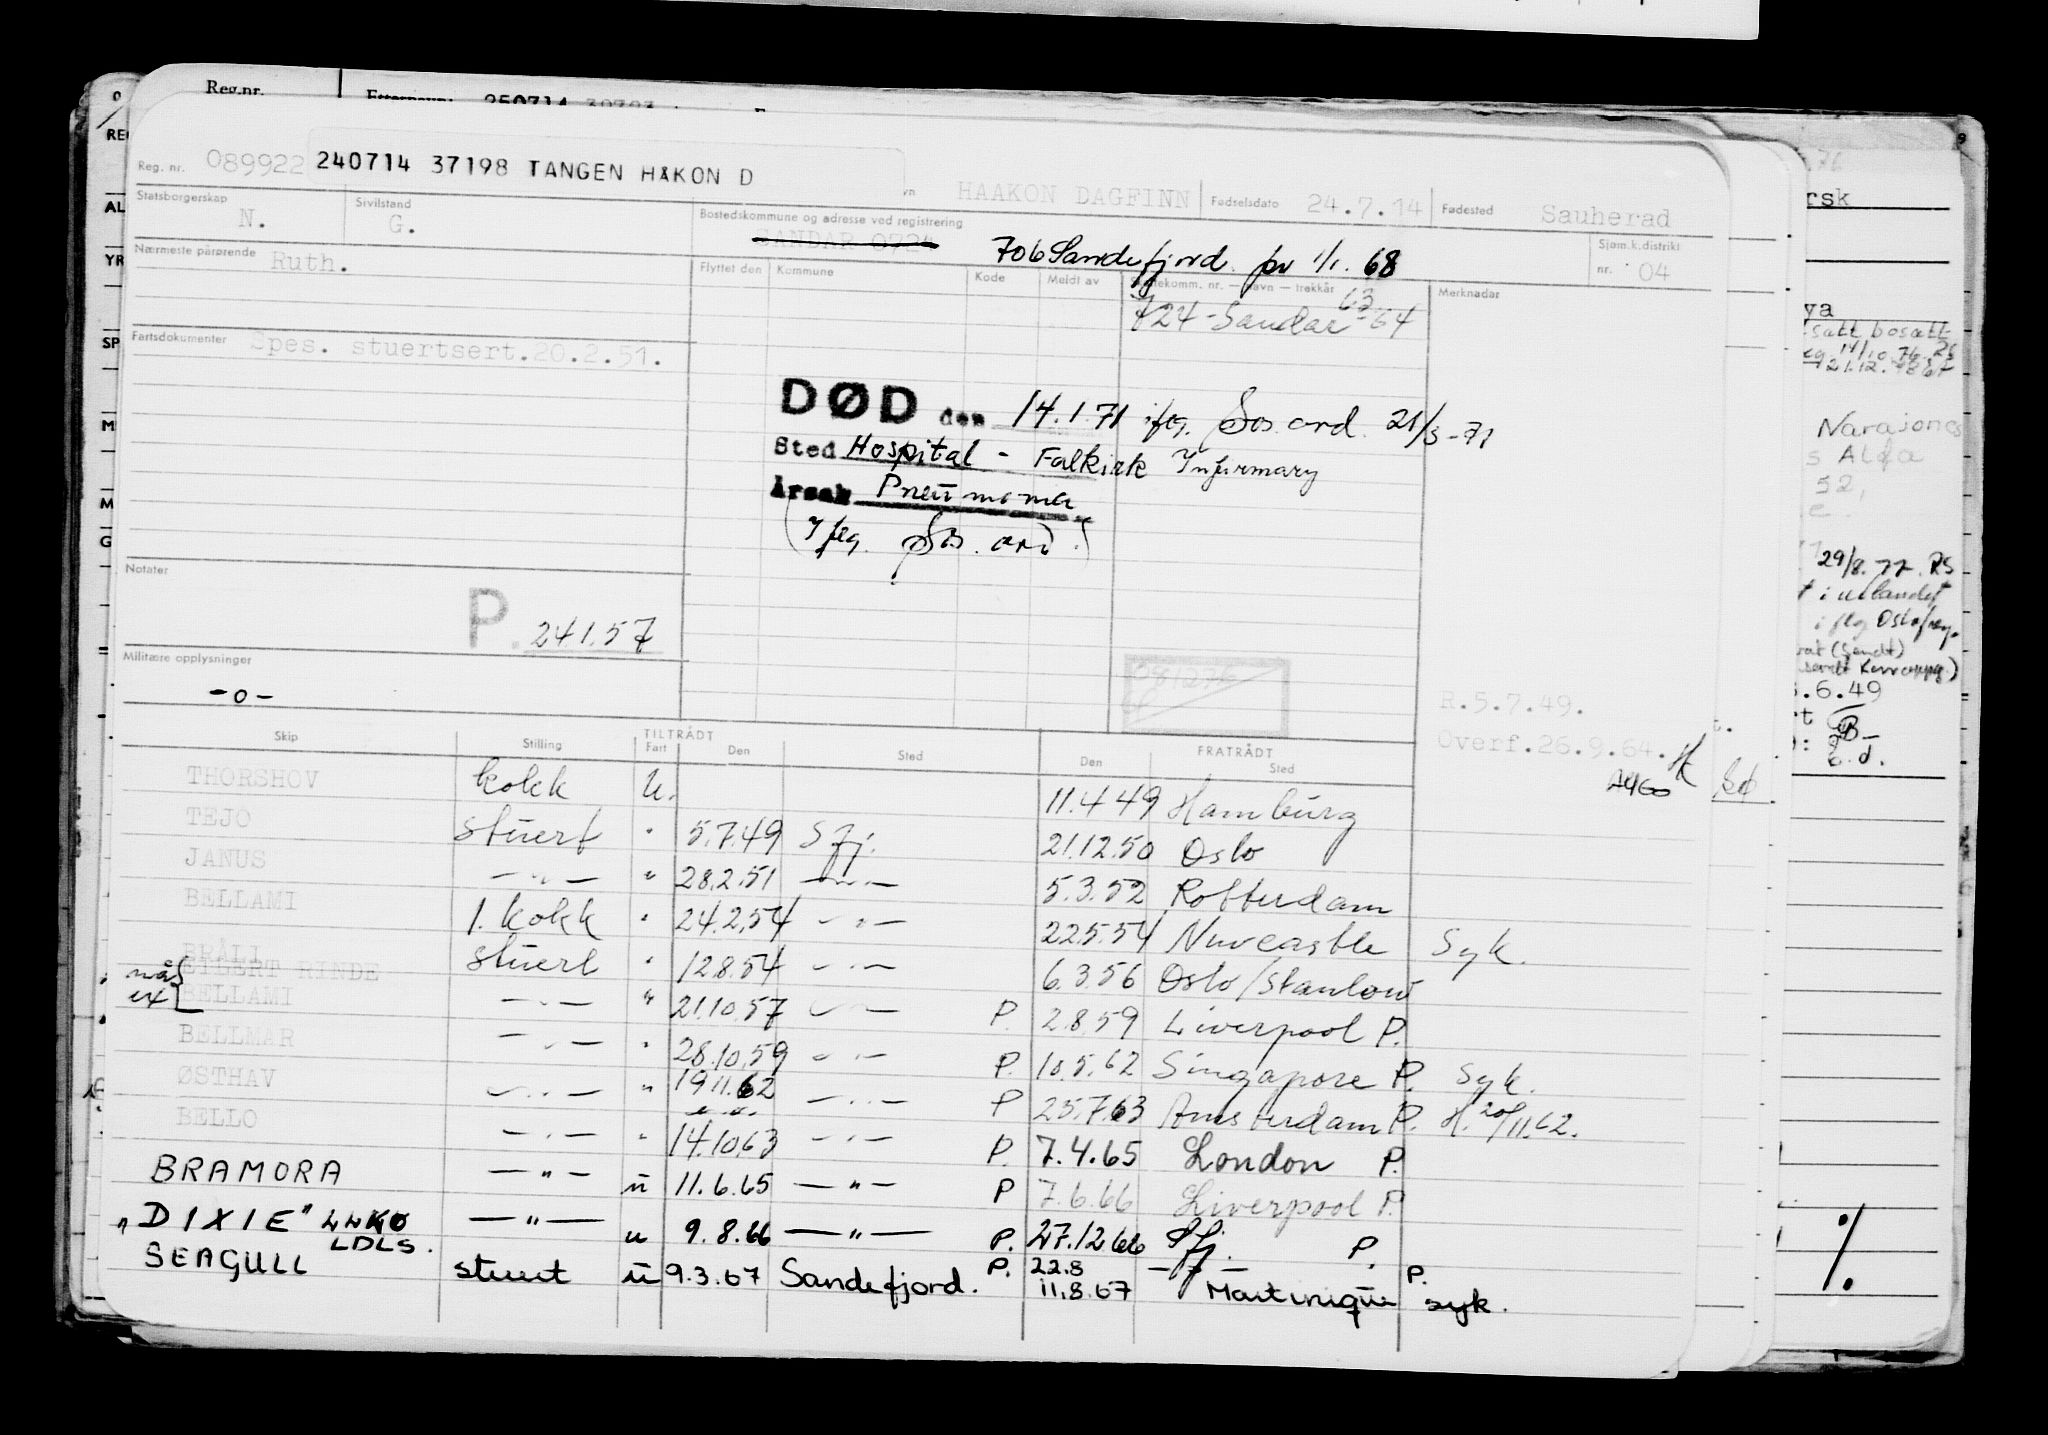 Reg.nr.
Reg. nr. 089922 240714 37198 TANGEN HÅKON D HAAKON DAGFINN Fødselsdato 24.7.14 Fødested Sauherad
Statsborgerskap N. Sivilstand G. Bostedskommune og adresse ved registrering SANDAR 0724 706 Sandefjord pr 1/1. 68 Sjøm.k.distrikt nr. 04
Nærmeste pårørende Ruth.
Flyttet den Kommune Kode Meldt av Skattekomm. nr. — navn — trekkår Merknader
724 - Sandar 63-64
Fartsdokumenter Spes. stuertsert.20.2.51.
DØD den 14.1.71 ifлg. Sos. ord. 21/3-71
Sted Hospital - Falkirk Infirmary
Årsak Pneumonia
(Iflg. Sos. ord.)
Notater
P. 241.57
Militære opplysninger
-o-
081276
R.5.7.49.
Overf.26.9.64.
Skip Stilling TILTRÅDT Fart Den Sted FRATRÅDT Den Sted
THORSHOV kokk u. 11.4.49 Hamburg
TEJO stuert " 5.7.49 Sfj. 21.12.50 Oslo
JANUS — " — " 28.2.51 — " — 5.3.52 Rotterdam
BELLAMI 1. kokk " 24.2.54 — " — 22.5.54 Newcastle Syk.
BRÅLI stuert " 12.8.54 — " — 6.3.56 Oslo/Stanlow
nå ex EILERT RINDE BELLAMI — " — " 21.10.57 — " — P. 2.8.59 Liverpool P.
BELLMAR — " — " 28.10.59 — " — P. 10.5.62 Singapore P. Syk.
ØSTHAV — " — " 19.11.62 — " — P 25.7.63 Amsterdam P. H. 20/11.62.
BELLO — " — " 14.10.63 — " — P. 7.4.65 London P.
BRAMORA — " — u 11.6.65 — " — P 7.6.66 Liverpool P.
"DIXIE" LLKO — " — u 9.8.66 — " — P. 27.12.66 Sfj. P.
LDLS.
SEAGULL stuert u 9.3.67 Sandefjord. P. 22.8 — " — P.
11.8.67 Martinique syk.
29/8.77. RS
.6.49